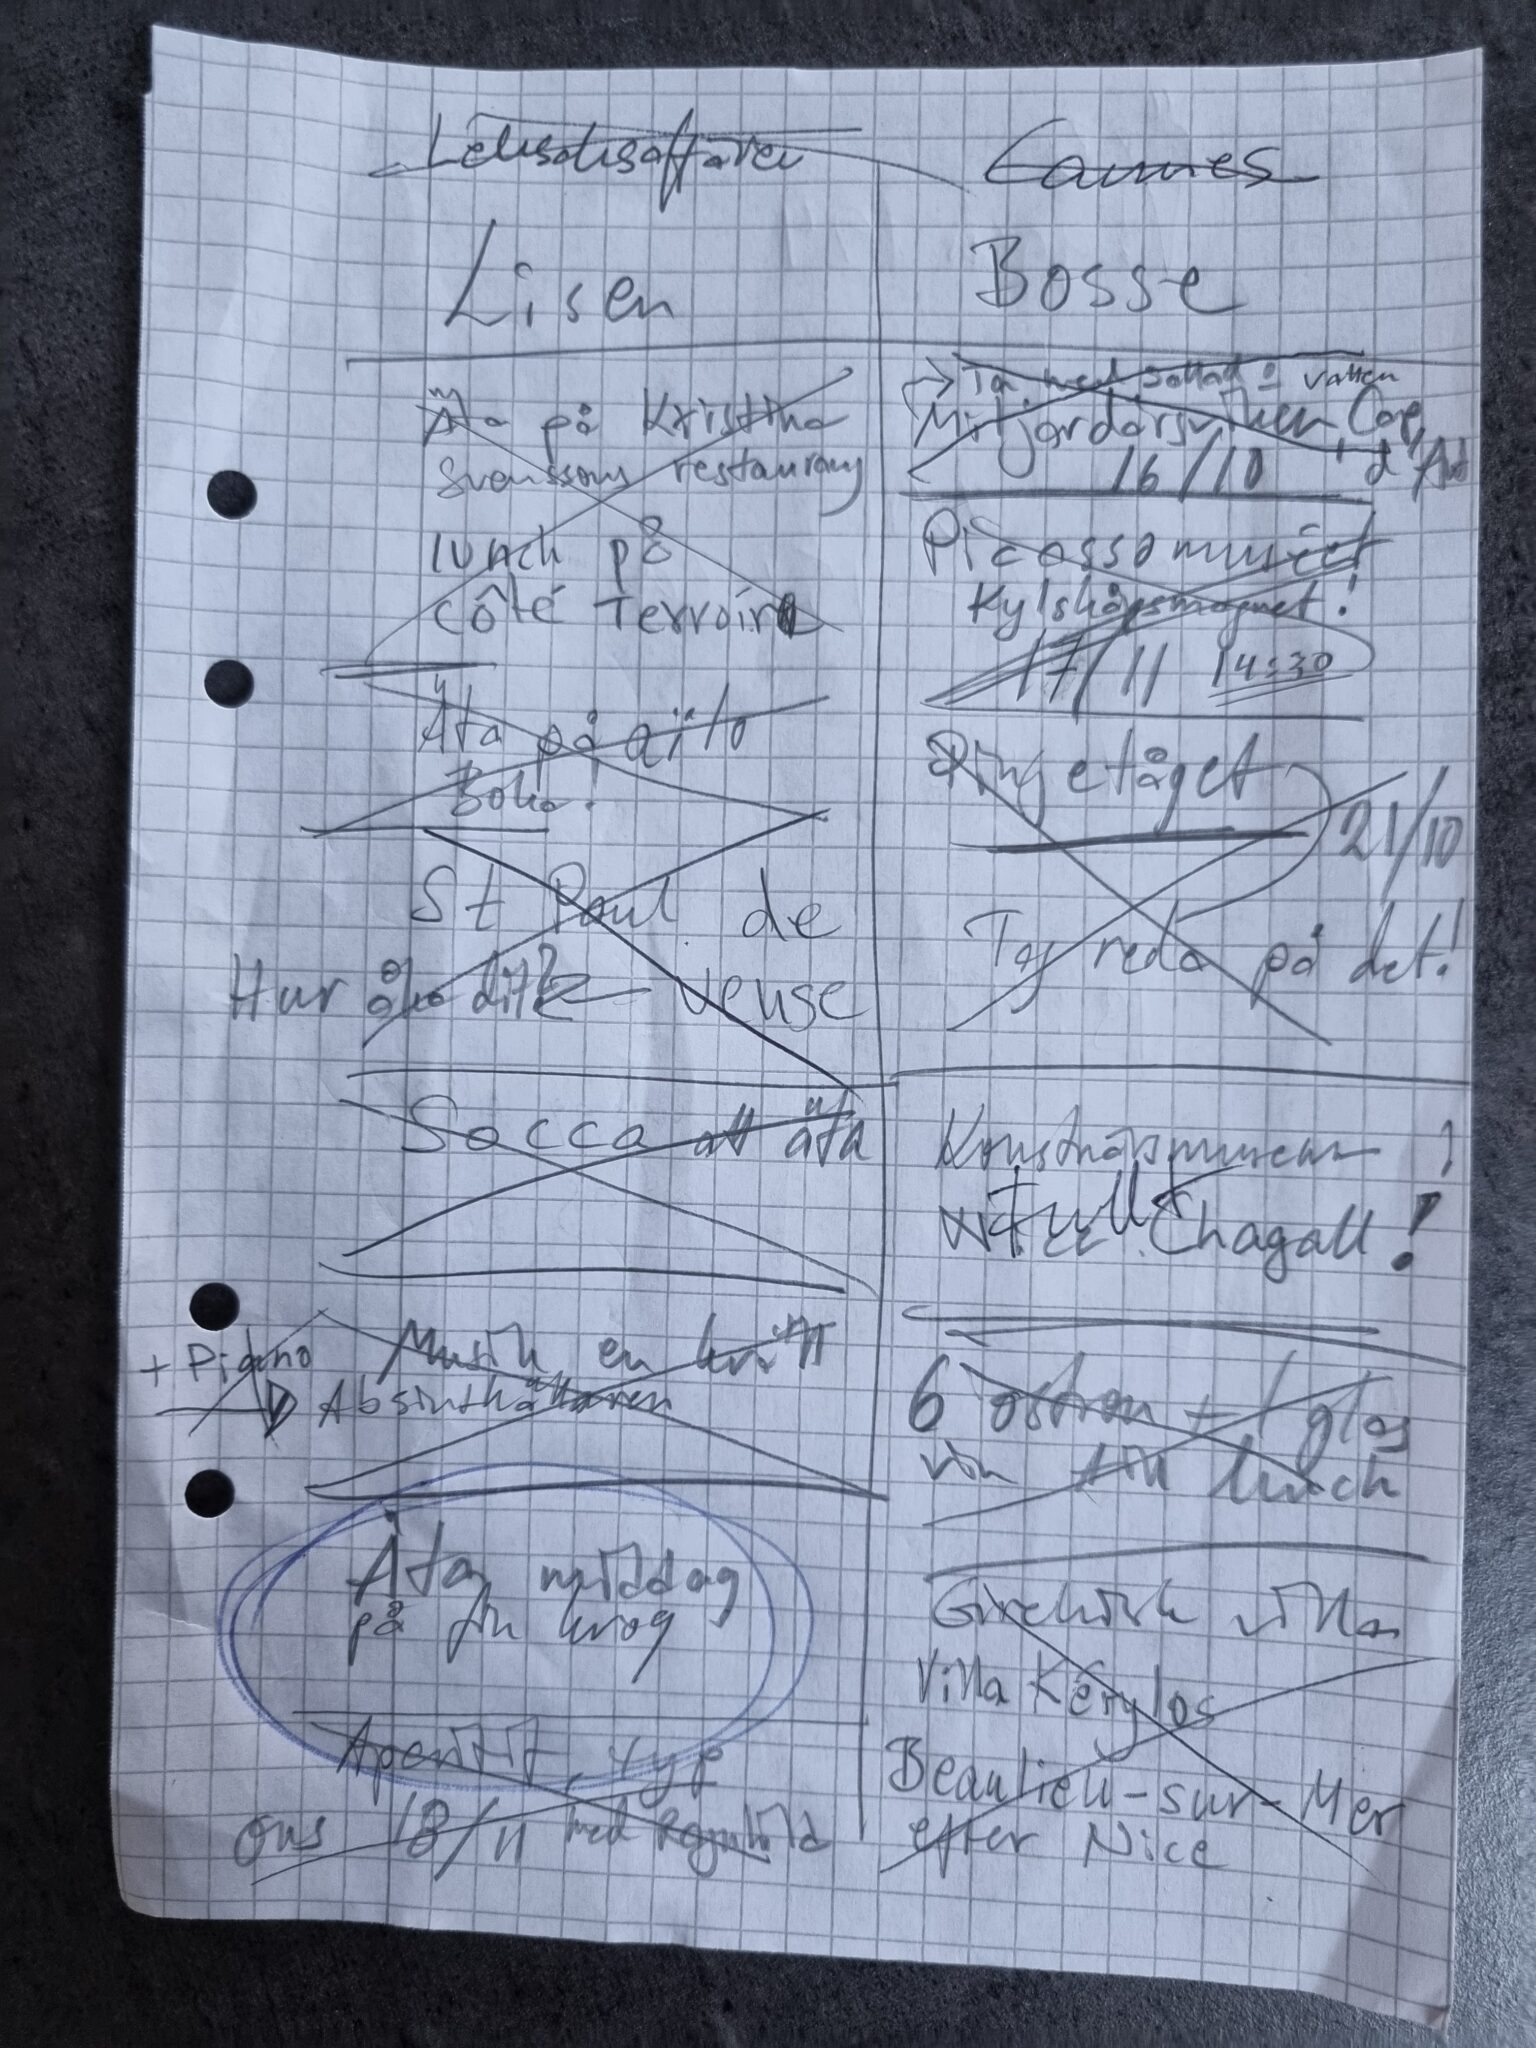 Leksaksaffären
Cannes
Lisen
Bosse
Äta på Kristina
Svenssons restaurang
lunch på
côté Terroir
Äta på aïto
Boka!
St Paul de
Hur åka dit? Vense
Socca att äta
Musik en kväll
+ Piano
Absinthbaren
Äta middag
på fin krog
Aperitif, typ
ons 18/11 med Ragnhild
Ta med sallad o vatten
Cap
16/10 d'Ant
Picassomuséet
Kylskåpsmagnet!
17/11 14:30
Pingetåget
21/10
Tag reda på det!
Fullt Chagall!
6 ostron + 1 glas
vin till lunch
Grekisk villa
Villa Kérylos
Beaulieu-sur-Mer
efter Nice